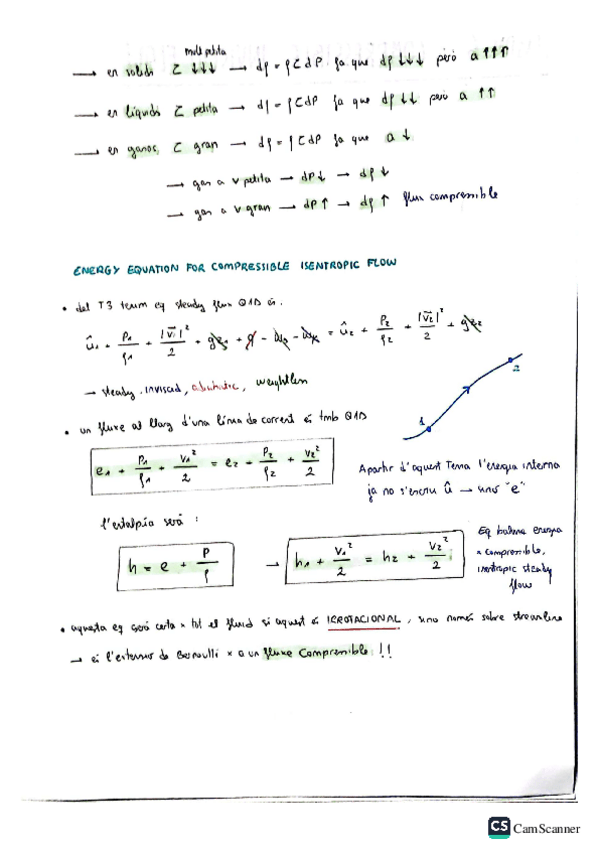 molt petita
→ en sòlids τ ↓↓↓ → dρ = ρτdP ja que dρ ↓↓↓ però a ↑↑↑
→ en líquids τ petita → dρ = ρτdP ja que dρ ↓↓ però a ↑↑
→ en gasos, τ gran → dρ = ρτdP ja que a ↓
→ gas a v petita → dP↓ → dρ ↓
→ gas a v gran → dP↑ → dρ ↑ flux compressible
ENERGY EQUATION FOR COMPRESSIBLE ISENTROPIC FLOW
• del T3 tenim eq steady flux Q1D és:
û₁ + P₁/ρ₁ + |v₁|²/2 + gz₁ + q - - = û₂ + P₂/ρ₂ + |v₂|²/2 + gz₂
→ steady, inviscid, adiabatic, weightless
1
2
• un fluxe al llarg d'una línia de corrent és tmb Q1D
e₁ + P₁/ρ₁ + v₁²/2 = e₂ + P₂/ρ₂ + v₂²/2
Apartir d'aquest Tema l'energia interna
ja no s'escriu û → sino "e"
l'entalpía serà :
h = e + P/ρ
→ h₁ + v₁²/2 = h₂ + v₂²/2
Eq balanç energia
x compressible,
isentropic steady
flow
• aquesta eq serà certa x tot el fluid si aquest és IRROTACIONAL, sino només sobre streamline
→ és l'extensió de Bernoulli x a un fluxe Compressible !!
CS CamScanner